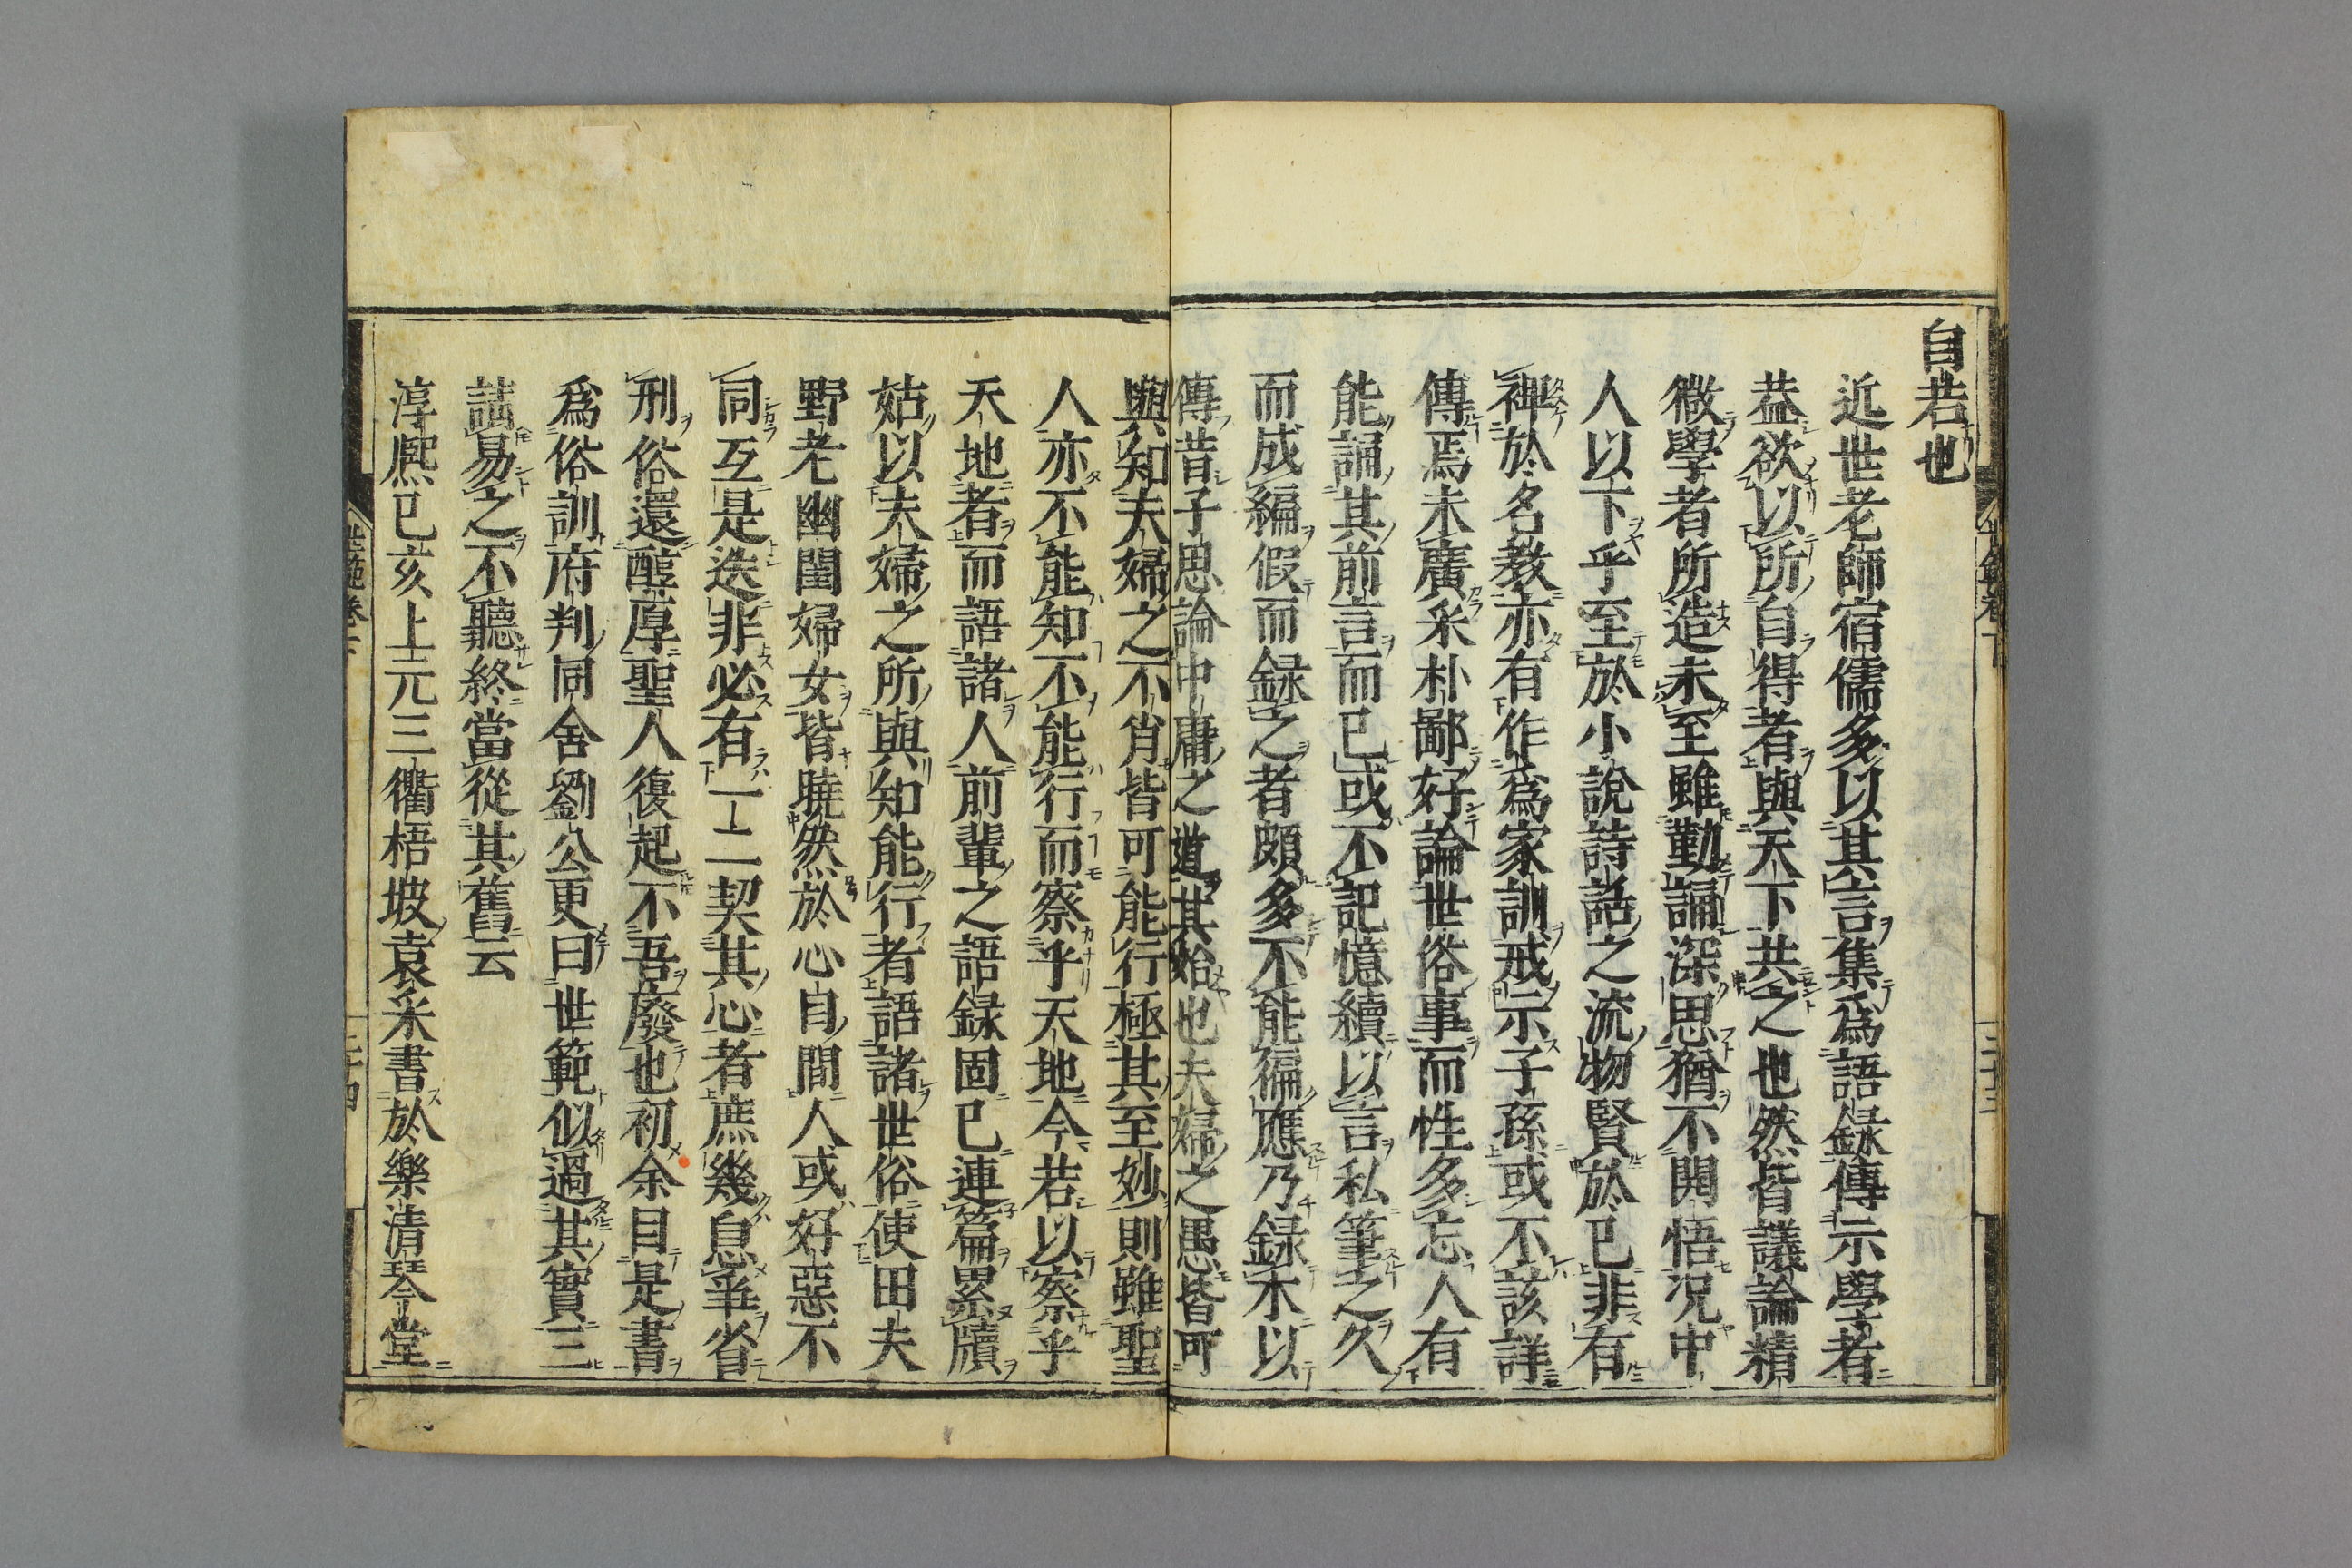 自若也
近世老師宿儒多以其言集爲語録傳示學者
葢欲以所自得者與天下共之也然皆議論精
微學者所造未至雖勤誦深思猶不開悟況中
人以下乎至於小說詩話之流物賢於已非有
裨於名教亦有作爲家訓戒示子孫或不該詳
傳焉未廣釆朴鄙好論世俗事而性多忘人有
能誦其前言而已或不記憶續以言私筆之久
而成編假而録之者頗多不能徧應乃録木以
傳昔子思論中庸之道其始也夫婦之愚皆可
與知夫婦之不肖皆可能行極其至妙則雖聖
人亦不能知不能行而察乎天地今若以察乎
天地者而語諸人前輩之語録固已連篇累牘
姑以夫婦之所與知能行者語諸世俗使田夫
野老幽閨婦女皆曉然於心自間人或好惡不
同互是迭非必有一二契其心者庶幾息爭省
刑俗還醇厚聖人復起不吾廢也初余目是書
爲俗訓府判同舍劉公更曰世範似過其實三
請易之不聽終當從其舊云
淳熙已亥上元三衢梧坡袁釆書於樂清琴堂
世範卷下